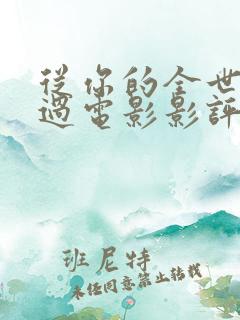 從你的全世
過電影影評
班尼特
未經同意禁止轉載